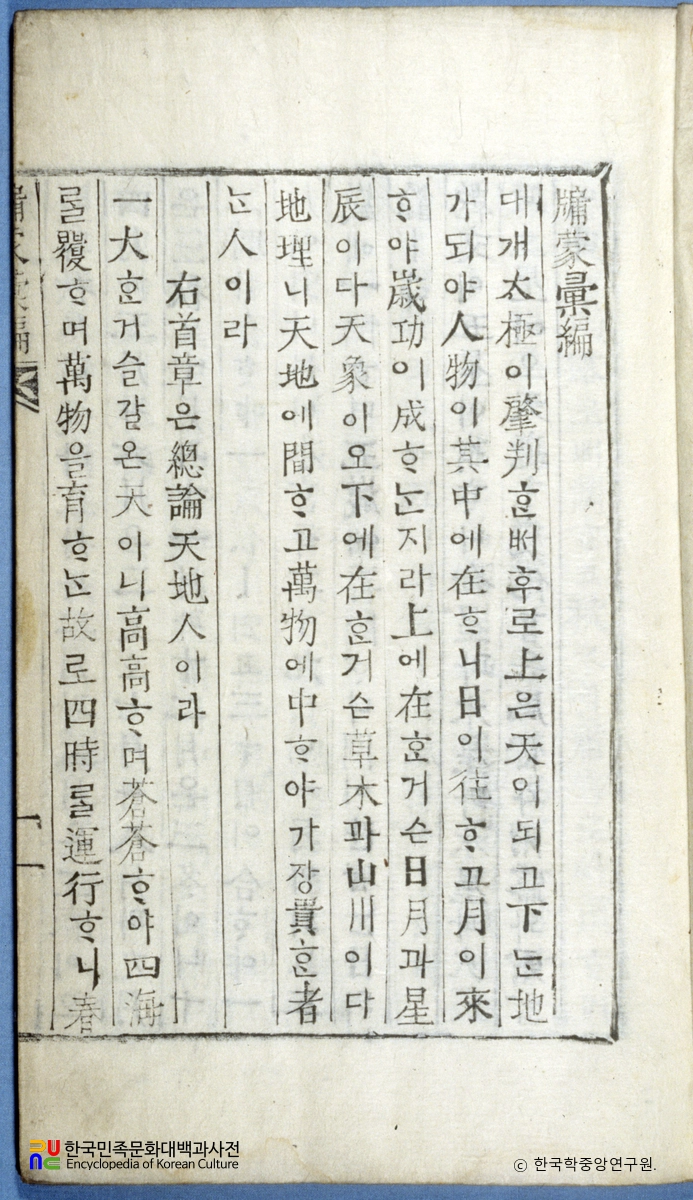 牖蒙彙編
대개太極이肇判ᄒᆞᆫ버후로上은天이되고下ᄂᆞᆫ地
가되야人物이其中에在ᄒᆞ니日이往ᄒᆞ고月이來
ᄒᆞ야歲功이成ᄒᆞᄂᆞᆫ지라上에在ᄒᆞᆫ거슨日月과星
辰이다天象이오下에在ᄒᆞᆫ거슨草木과山川이다
地理니天地에間ᄒᆞ고萬物에中ᄒᆞ야가장貴ᄒᆞᆫ者
ᄂᆞᆫ人이라
右首章은總論天地人이라
一大ᄒᆞᆫ거슬갈온天이니高高ᄒᆞ며蒼蒼ᄒᆞ야四海
ᄅᆞᆯ覆ᄒᆞ며萬物을育ᄒᆞᄂᆞᆫ故로四時ᄅᆞᆯ運行ᄒᆞ니春
牖蒙彙編
一
한국민족문화대백과사전
Encyclopedia of Korean Culture
ⓒ 한국학중앙연구원.